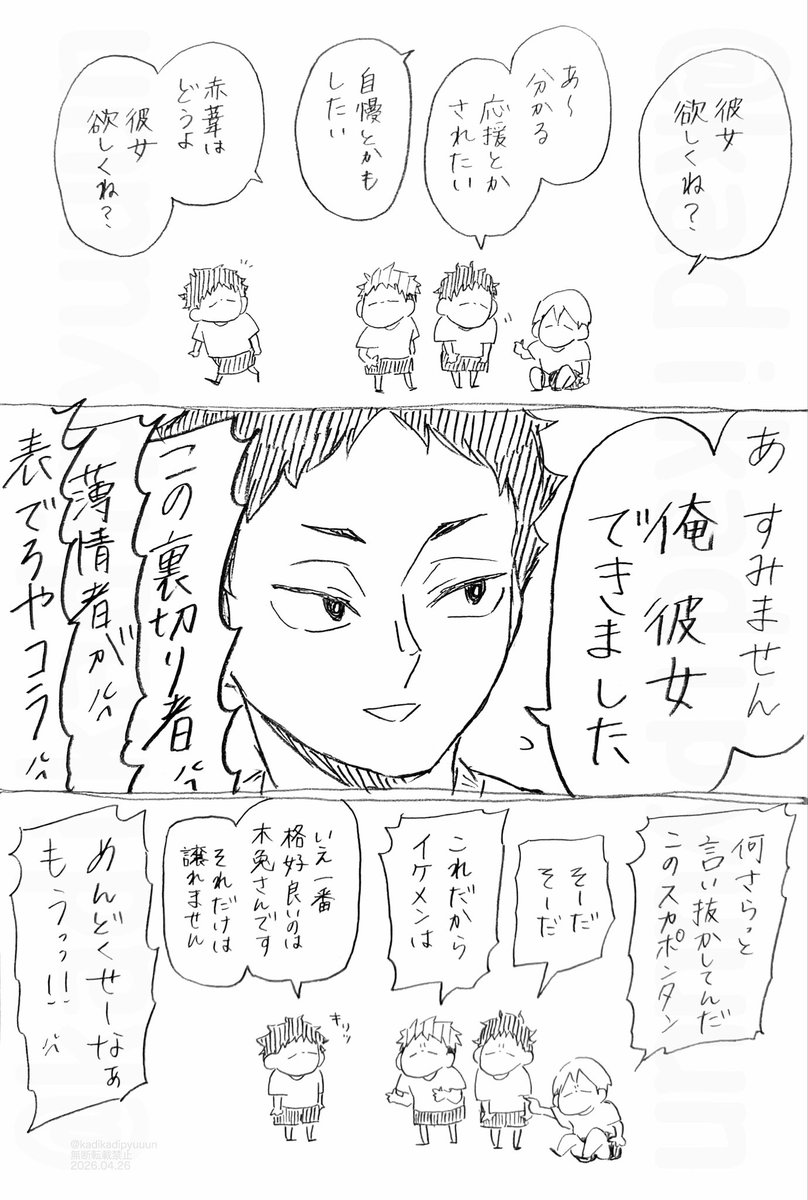 彼女
欲しくね？
あ〜
分かる
応援とか
されたい
自慢とかも
したい
赤葦は
どうよ
彼女
欲しくね？
あ すみません
俺 彼女
できました
この裏切り者
薄情者が
表でろやコラ
何さらっと
言い抜かしてんだ
このスカポンタン
そーだ
そーだ
これだから
イケメンは
キリッ
いえ一番
格好良いのは
木兎さんです
それだけは
譲れません
めんどくせーなぁ
もうっっ!!
@kadikadipyuuun
無断転載禁止
2026.04.26